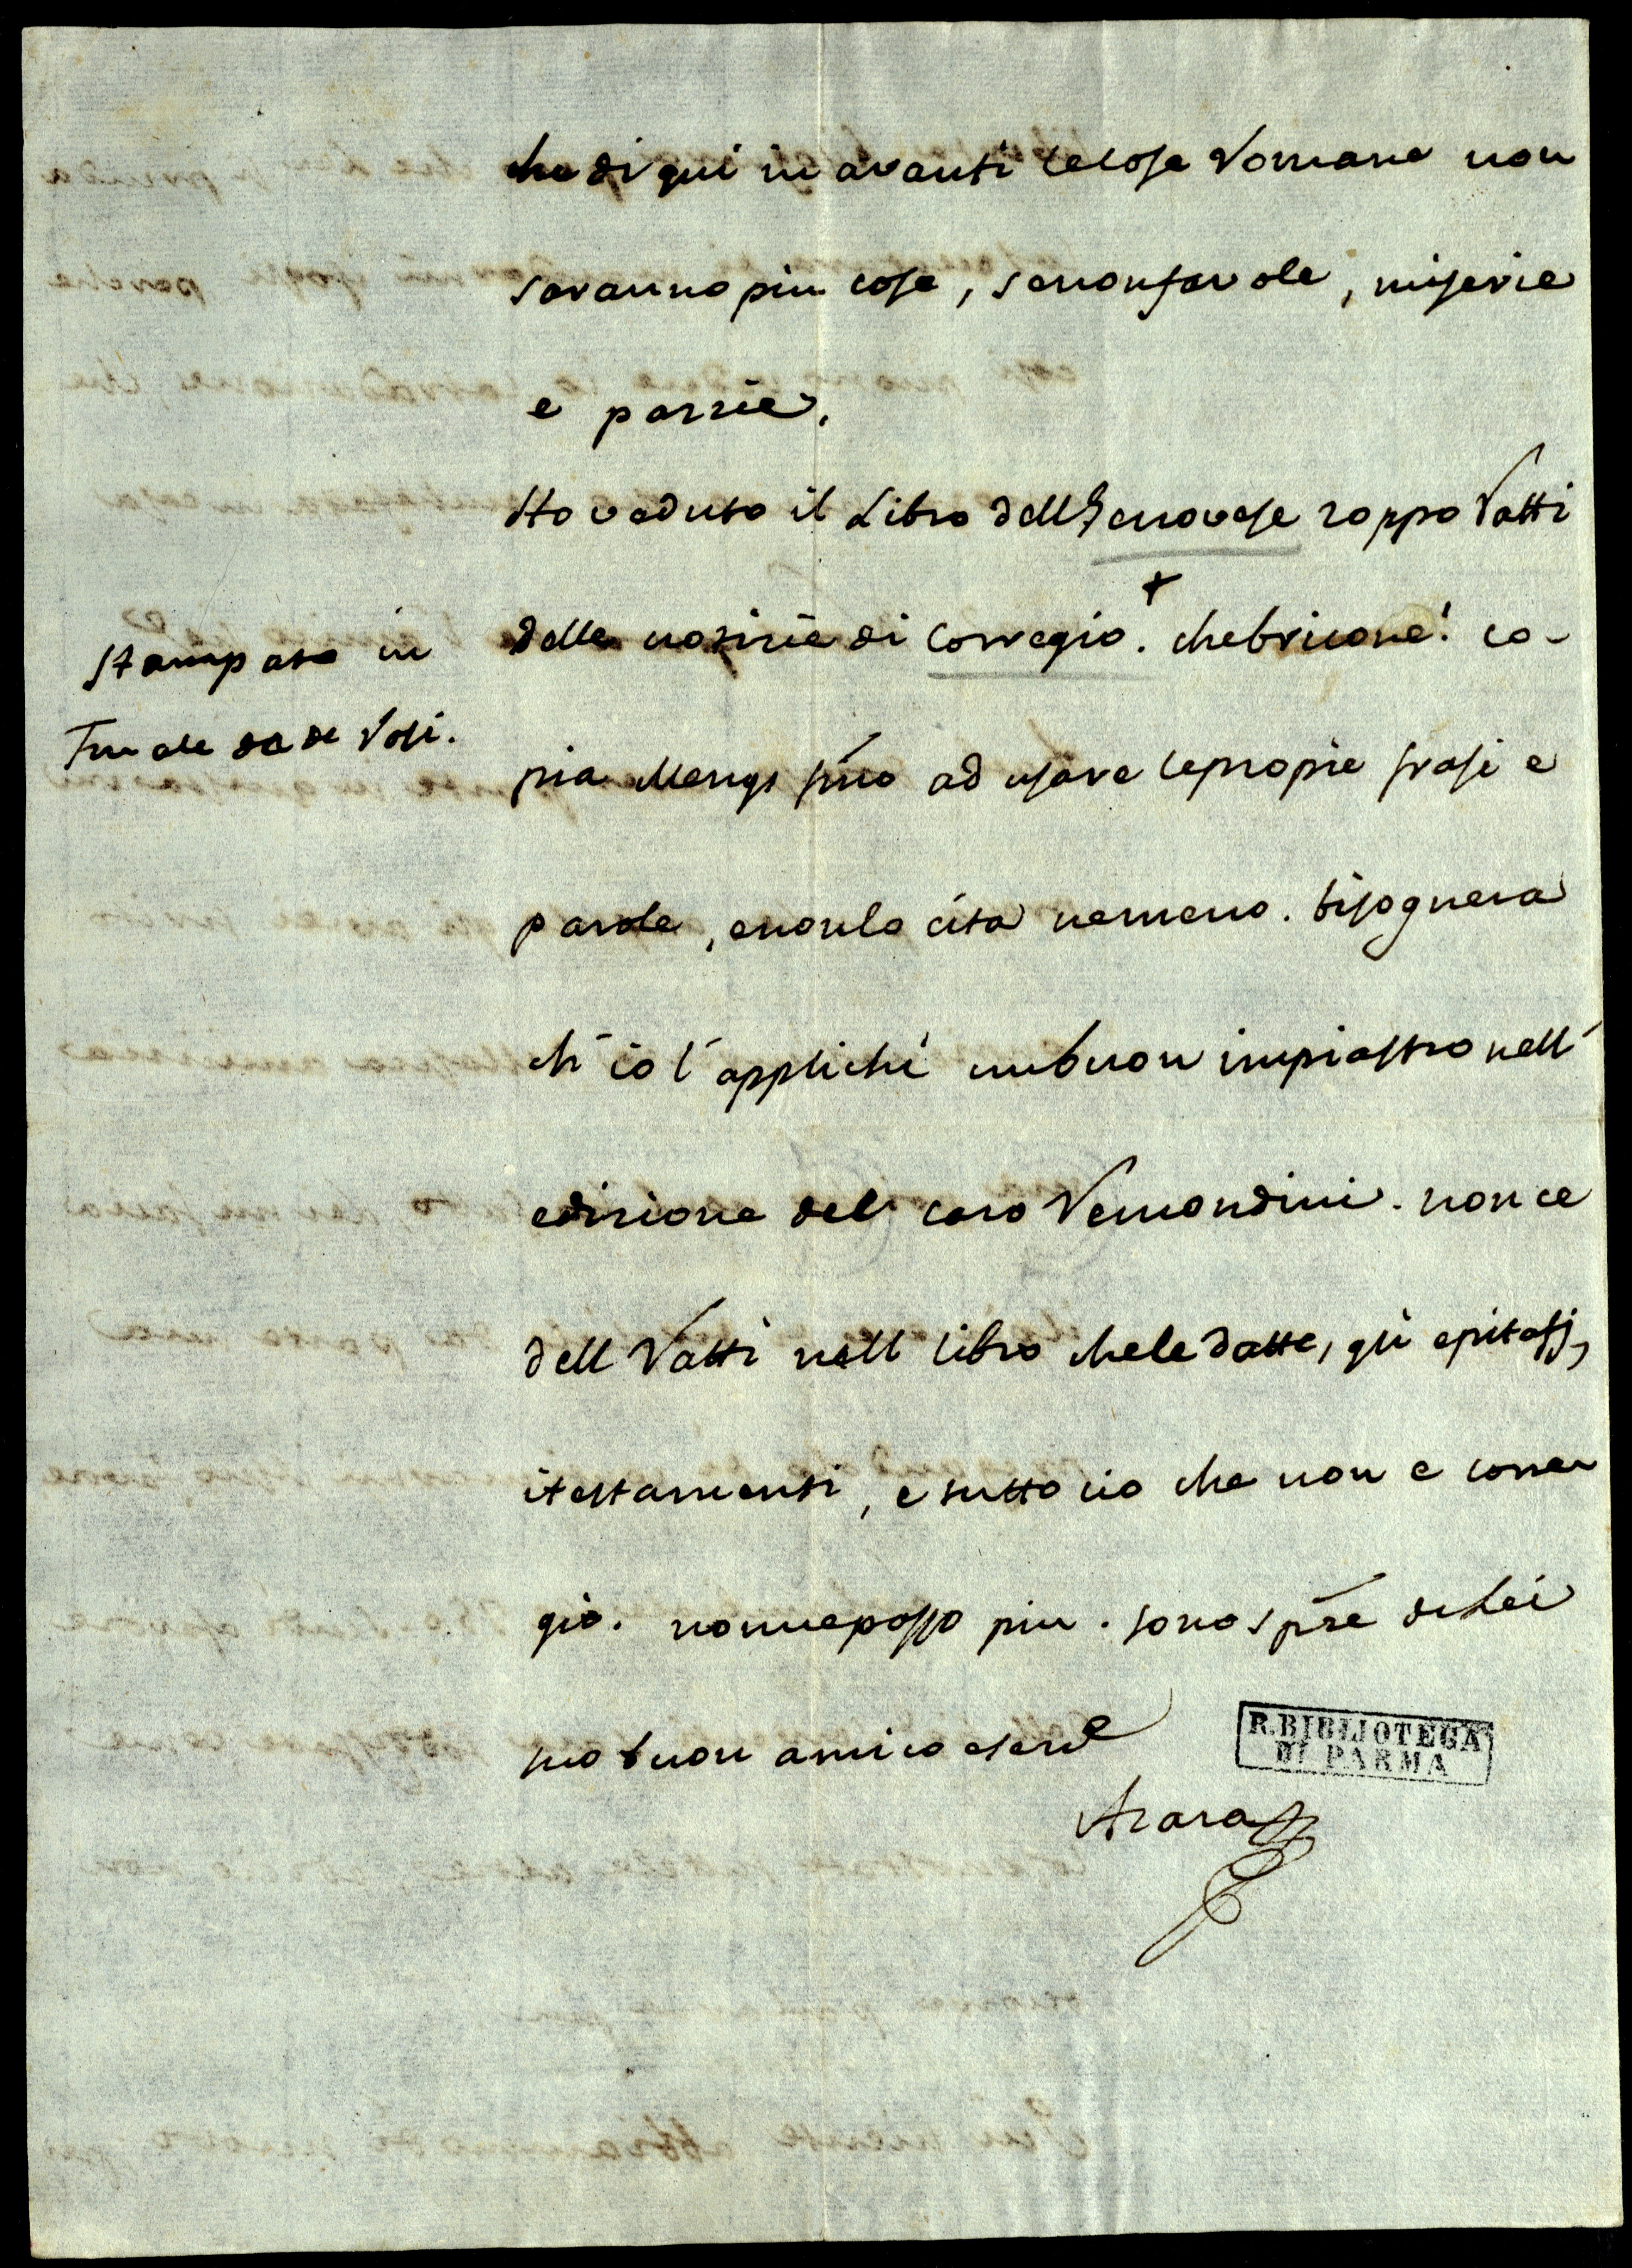 che di qui in avanti le cose Romane non
saranno piu cose, se non favole, miserie
e pazzie.
Ho veduto il Libro dell Genovese zoppo Ratti
delle notizie di Corregio. + che bricone! co-
stampato in
Finale da de Rossi.
pia Mengs fino ad usare le propie frasi e
parole, e non lo cita nemeno. bisognera
ch'io l'applichi un buon impiastro nell'
edizione del caro Remondini. non ce
dell Ratti nell libro che le datte, gli epitaffj,
i testamenti, e tutto cio che non e corre
gio. non ne posso piu. sono spre di Lei
suo buon amico e serve
Azara
R. BIBLIOTECA
DI PARMA